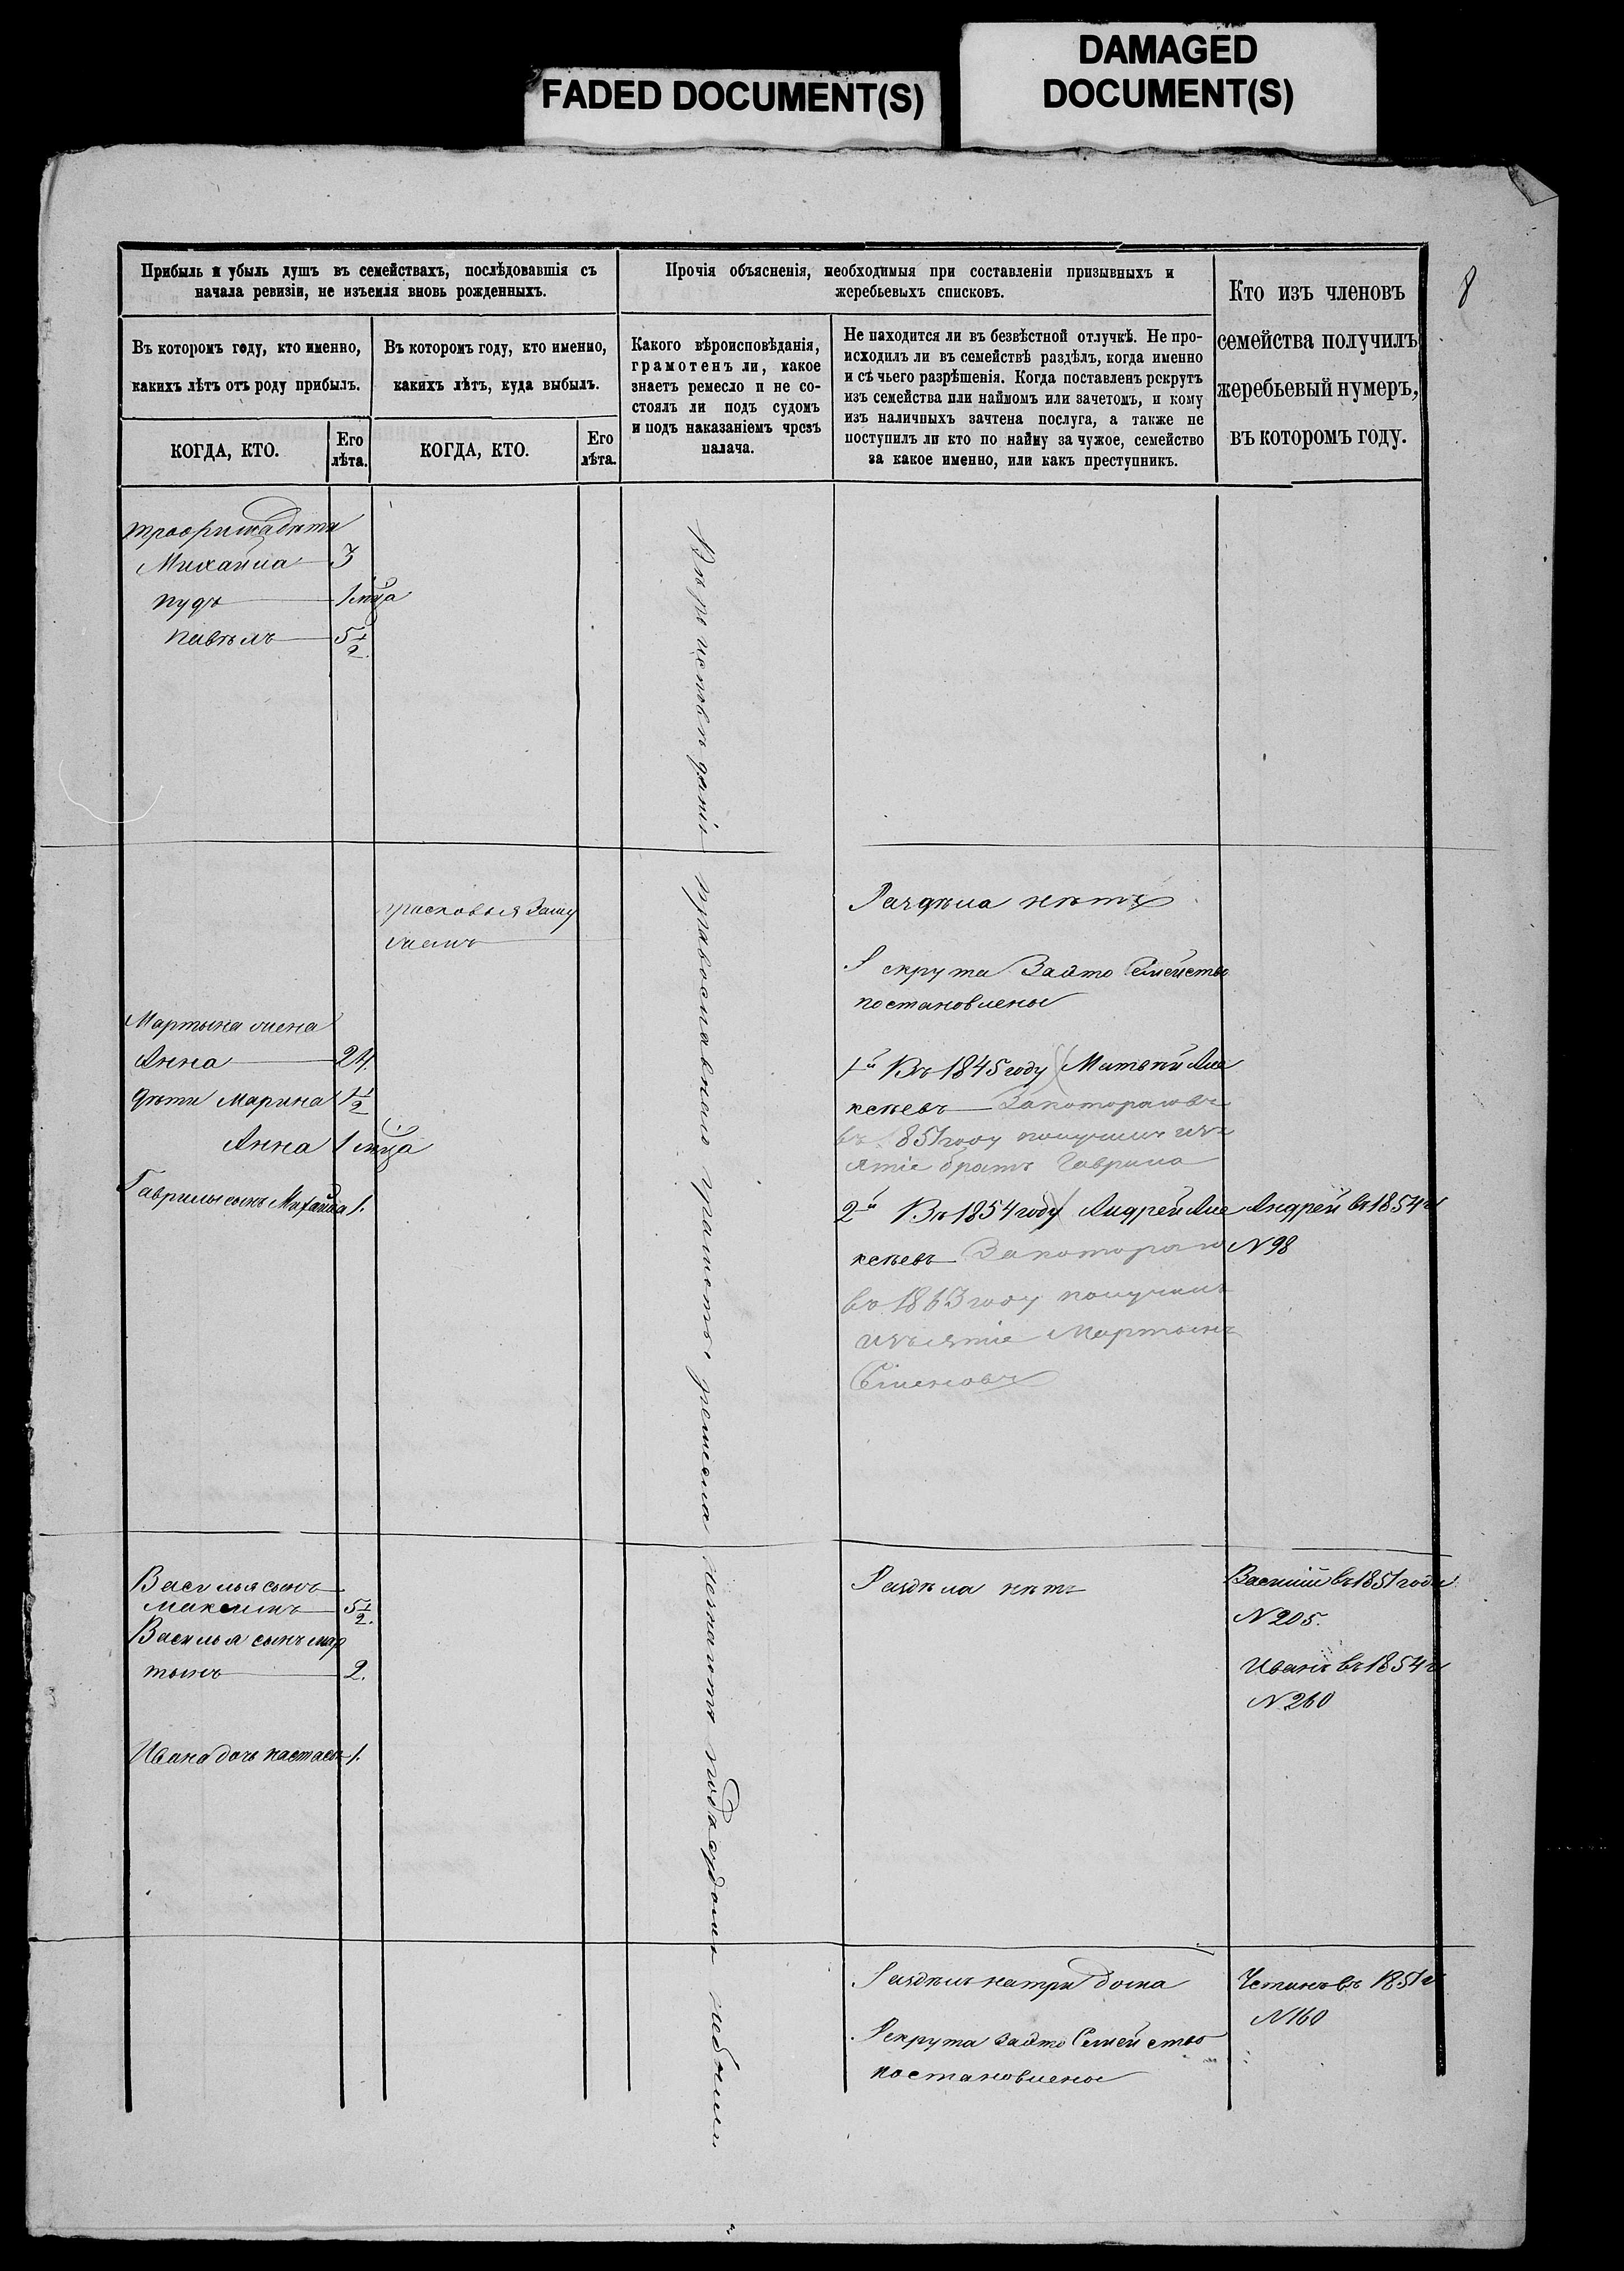 FADED DOCUMENT(S)
DAMAGED
DOCUMENT(S)
8
Прибыль и убыль душъ въ семействахъ, послѣдовавшія съ
начала ревизіи, не изъемля вновь рожденныхъ.
Въ которомъ году, кто именно,
какихъ лѣтъ отъ роду прибылъ.
КОГДА, КТО.
Его
лѣта.
Въ которомъ году, кто именно,
какихъ лѣтъ, куда выбылъ.
КОГДА, КТО.
Его
лѣта.
Прочія объясненія, необходимыя при составленіи призывныхъ и
жеребьевыхъ списковъ.
Какого вѣроисповѣданія,
грамотенъ ли, какое
знаетъ ремесло и не со-
стоялъ ли подъ судомъ
и подъ наказаніемъ чрезъ
палача.
Не находится ли въ безвѣстной отлучкѣ. Не про-
исходилъ ли въ семействѣ раздѣлъ, когда именно
и съ чьего разрѣшенія. Когда поставленъ рекрутъ
изъ семейства или наймомъ или зачетомъ, и кому
изъ наличныхъ зачтена послуга, а также не
поступилъ ли кто по найму за чужое, семейство
за какое именно, или какъ преступникъ.
Кто изъ членовъ
семейства получилъ
жеребьевый нумеръ,
въ которомъ году.
Трофима дѣти
Михайла 3
пудъ 1 мца
павѣлъ 5 1/2.
Вѣроисповѣданія православнаго грамоты ремесла незнаютъ подъ судомъ небыли
прасковья Заму
жемъ
Раздѣла нѣтъ
Рекрута Заэто Семейство
постановлены
Мартына жена
Анна 24.
дѣти Марина 1 1/2
Анна 1 мца
Гаврилы сынъ Михайла 1.
1й Въ 1845 году Матвѣй Але
ксѣевъ Закотораговъ
въ 1851 году получилъ изъ
ятіе братъ Гаврила
2й Въ 1854 году Андрей Але
ксѣевъ Закотораго
въ 1863 году получилъ
изъятіе Мартынъ
Семеновъ
Андрей въ 1854 г
N 98
Василья сынъ
Максимъ 5 1/2.
Василья сынъ мар
тынъ 2.
Ивана дочь настасья 1.
Раздѣла нѣтъ
Василій въ 1851 году
N 205.
Иванъ въ 1854 г
N 260
Раздѣлъ на три дома
Рекрута заэто Семейство
постановлены
Устинъ въ 1851 г
N 160